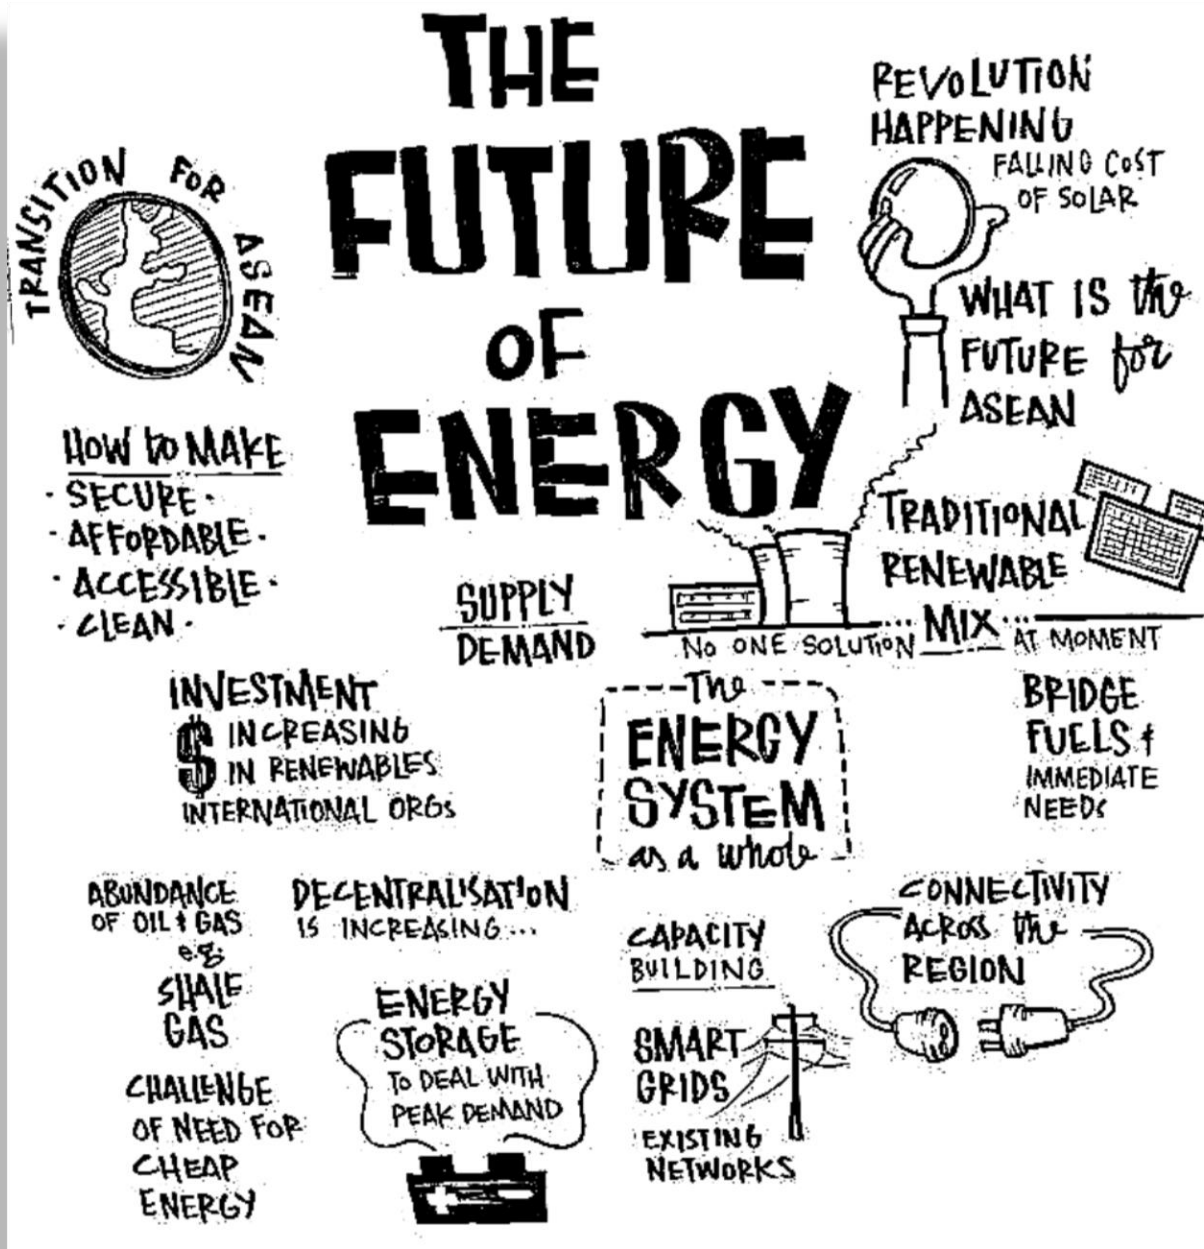 THE
FUTURE
OF
ENERGY
TRANSITION FOR ASEAN
REVOLUTION
HAPPENING
FALLING COST
OF SOLAR
WHAT IS the
FUTURE for
ASEAN
HOW to MAKE
· SECURE ·
· AFFORDABLE ·
· ACCESSIBLE ·
· CLEAN ·
SUPPLY
DEMAND
TRADITIONAL
RENEWABLE
NO ONE SOLUTION ... MIX ... AT MOMENT
INVESTMENT
$ INCREASING
IN RENEWABLES
INTERNATIONAL ORGs
The
ENERGY
SYSTEM
as a whole
BRIDGE
FUELS &
IMMEDIATE
NEEDS
ABUNDANCE
OF OIL & GAS
e.g
SHALE
GAS
CHALLENGE
OF NEED FOR
CHEAP
ENERGY
DECENTRALISATION
IS INCREASING...
ENERGY
STORAGE
TO DEAL WITH
PEAK DEMAND
CAPACITY
BUILDING
SMART
GRIDS
EXISTING
NETWORKS
CONNECTIVITY
ACROSS the
REGION